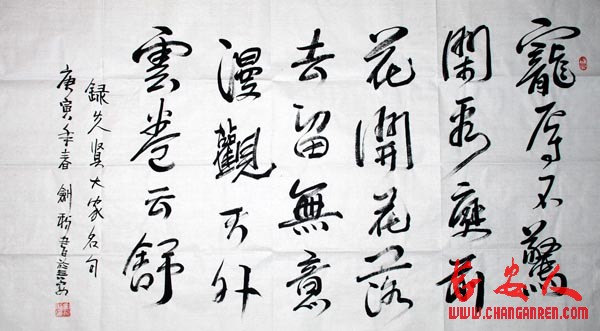 寵辱不驚
閑看庭前
花開花落
去留無意
漫觀天外
雲卷云舒
録先賢大家名句
庚寅年春 劍 書於長安
长安人
WWW.CHANGANREN.COM